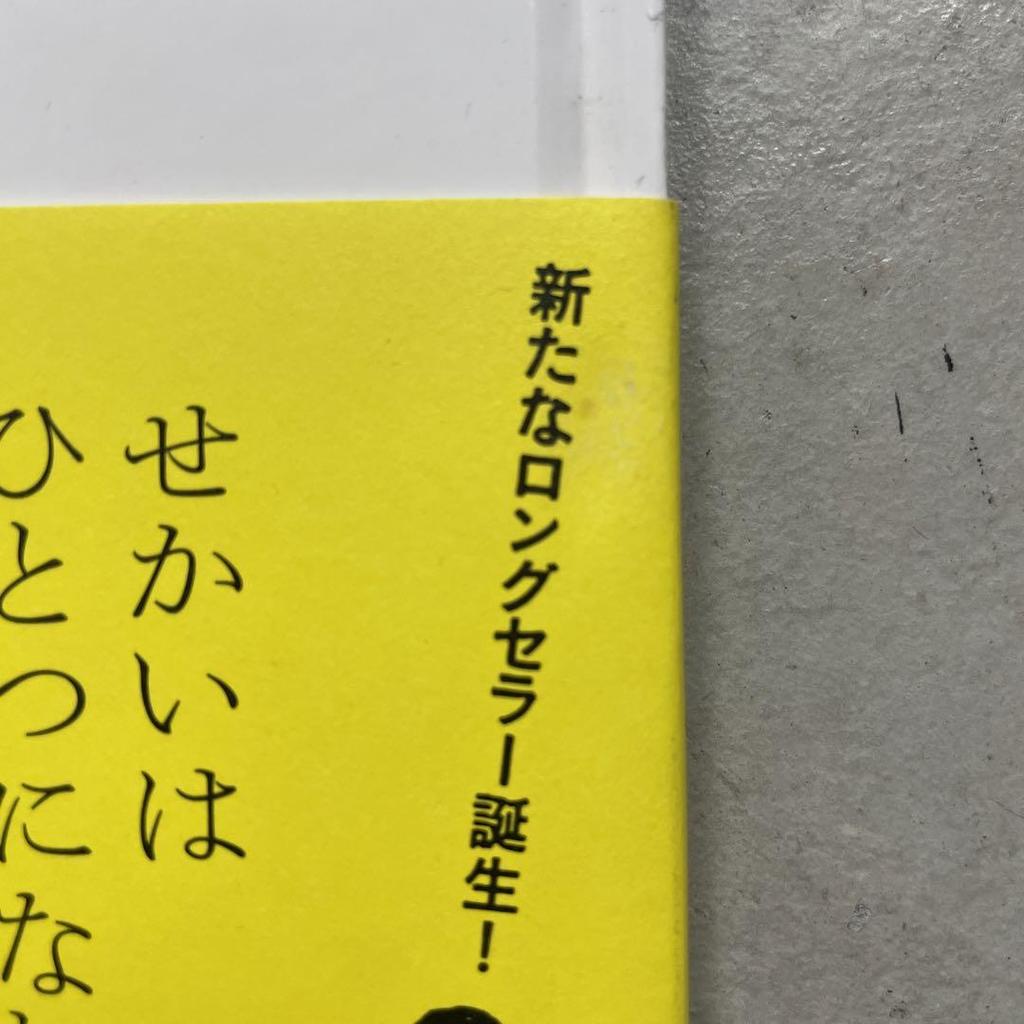 新たなロングセラー誕生！
せかいは
ひとつにな